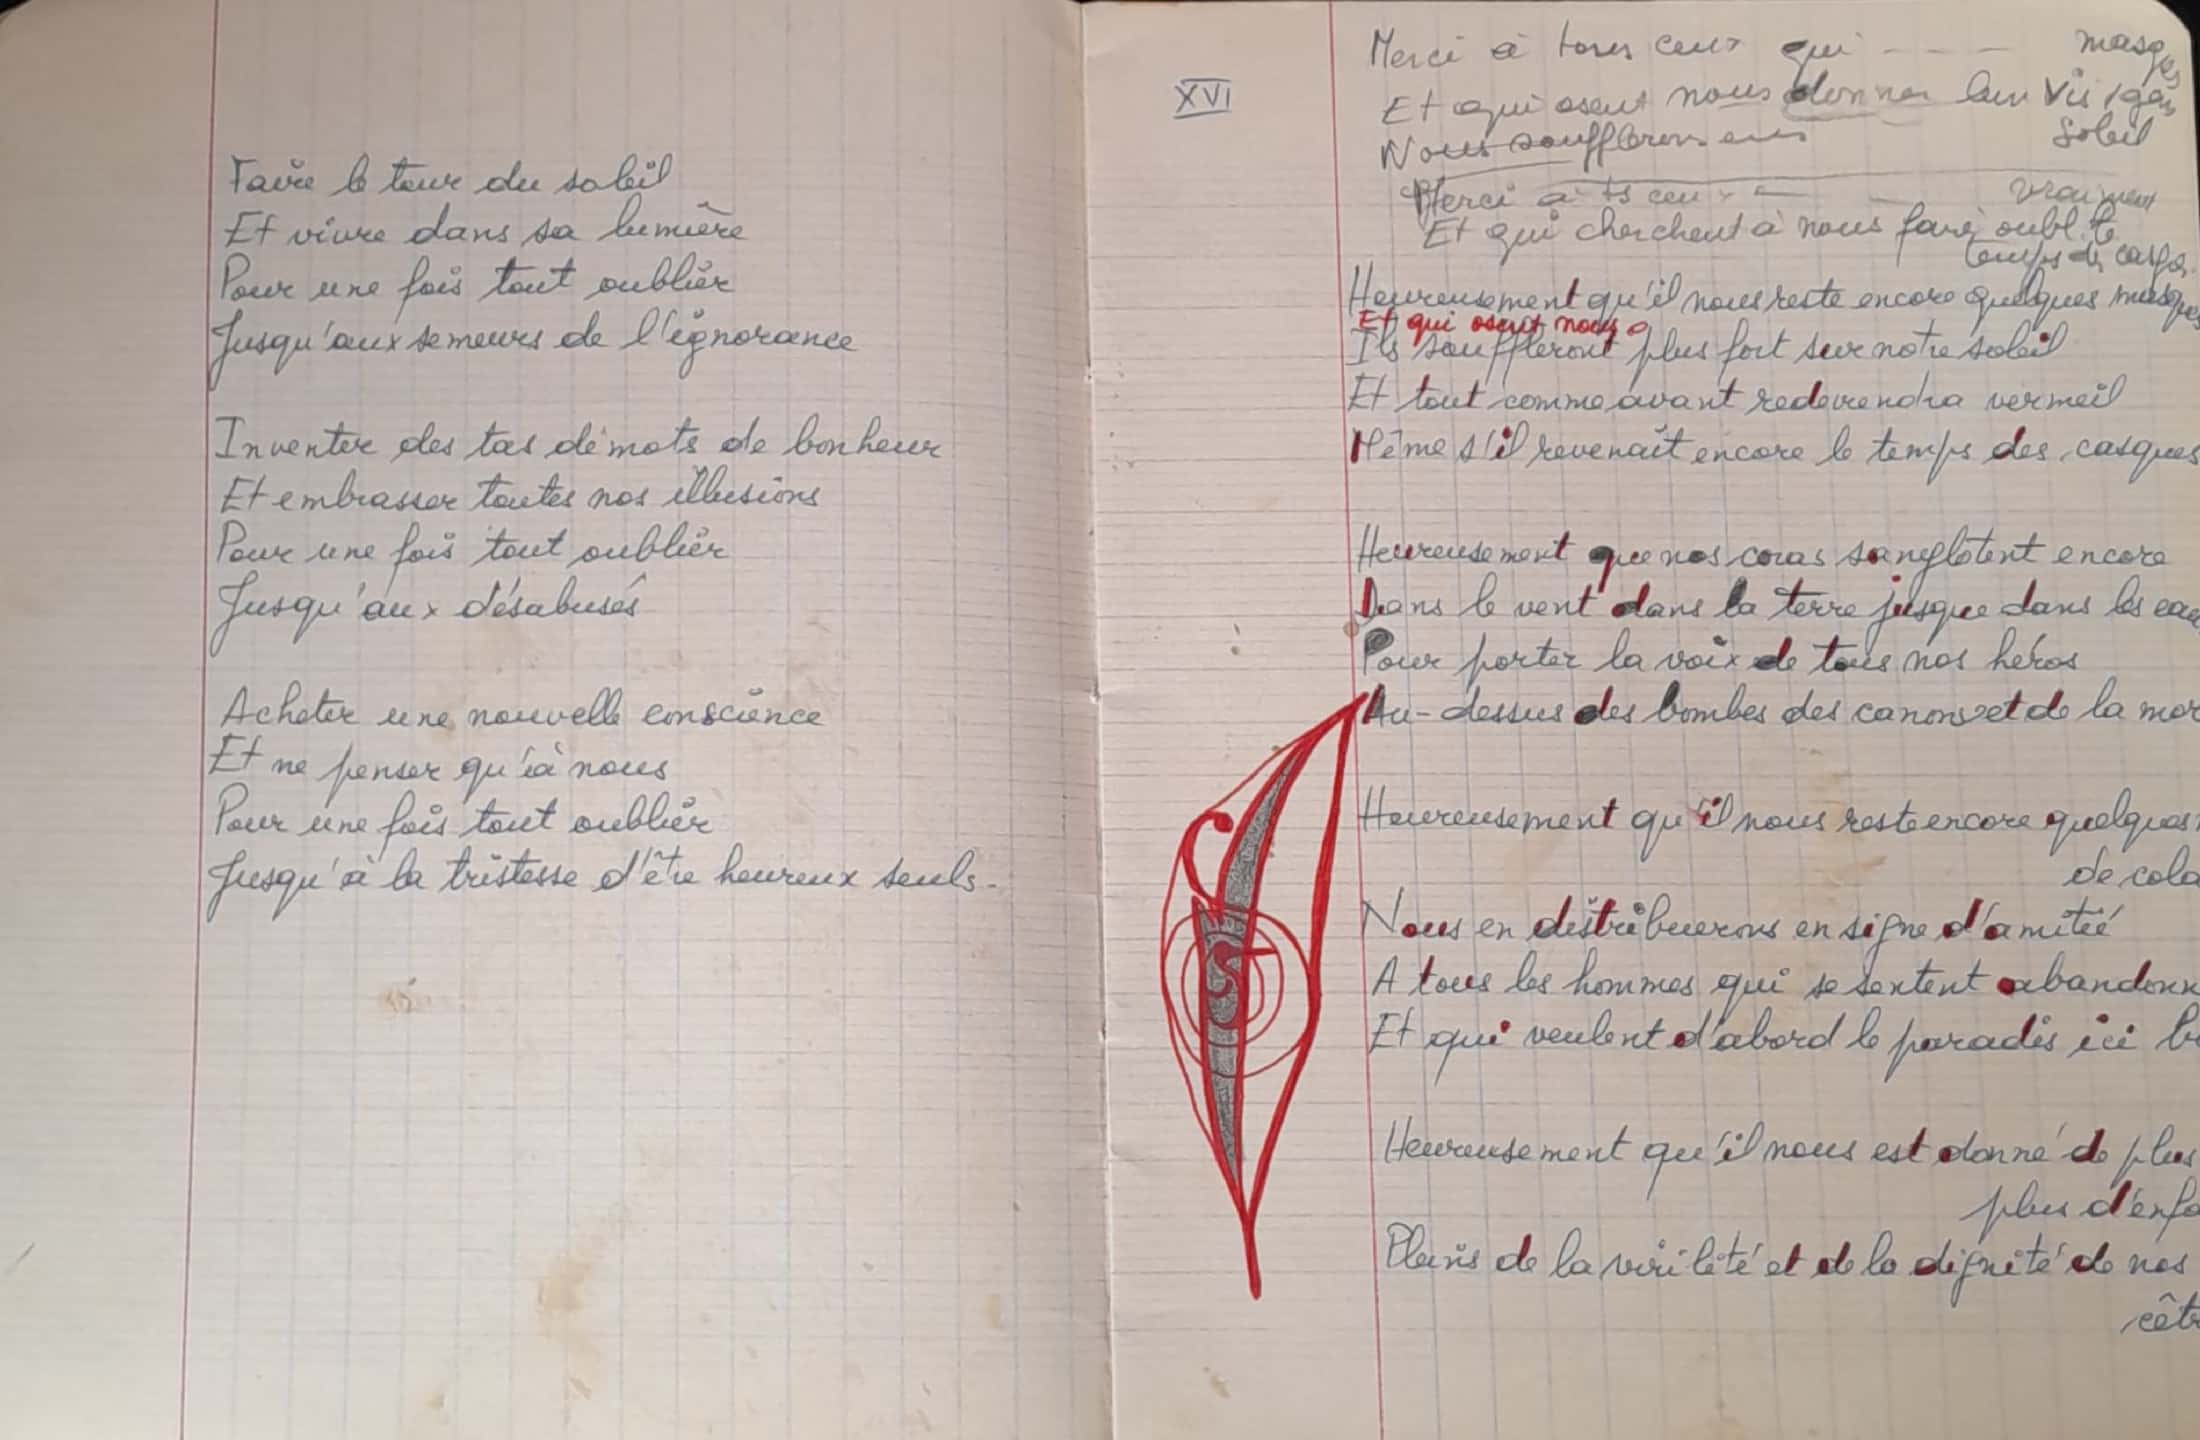 Faire le tour du soleil
Et vivre dans sa lumière
Pour une fois tout oublier
Jusqu'aux semeurs de l'ignorance
Inventer des tas de mots de bonheur
Et embrasser toutes nos illusions
Pour une fois tout oublier
Jusqu'aux désabusés
Acheter une nouvelle conscience
Et ne penser qu'à nous
Pour une fois tout oublier
Jusqu'à la tristesse d'être heureux seuls.
XVI
Merci à tous ceux qui - - - masques
Et qui osent nous donner leur
soleil
Nous soufflerons
Merci à ts ceux vraiment
Et qui cherchent à nous faire oubl. le
temps des casques
Heureusement qu'il nous reste encore quelques masques
Et qui osent nous
Ils souffleront plus fort sur notre soleil
Et tout comme avant redeviendra vermeil
Même s'il revenait encore le temps des casques
Heureusement que nos coras sanglotent encore
Dans le vent dans la terre jusque dans les eau
Pour porter la voix de tous nos héros
Au-dessus des bombes des canons et de la mor
Heureusement qu'il nous reste encore quelques
de cola
Nous en distribuerons en signe d'amitié
A tous les hommes qui se sentent abandonn
Et qui veulent d'abord le paradis ici b
Heureusement qu'il nous est donné de plus
plus d'enfa
Pleins de la virilité et de la dignité de nos